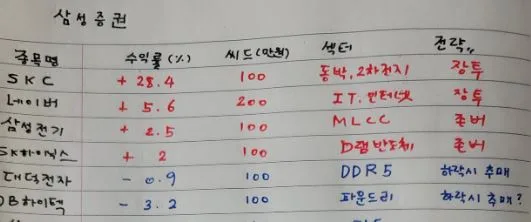 삼성증권
종목명 수익률(%) 씨드(만원) 섹터 전략
SKC + 28.4 100 동박, 2차전지 장투
네이버 + 5.6 200 IT. 인터넷 장투
삼성전기 + 2.5 100 MLCC 존버
SK하이닉스 + 2 100 D램반도체 존버
대덕전자 - 0.9 100 DDR5 하락시 추매
DB하이텍 - 3.2 100 파운드리 하락시 추매?